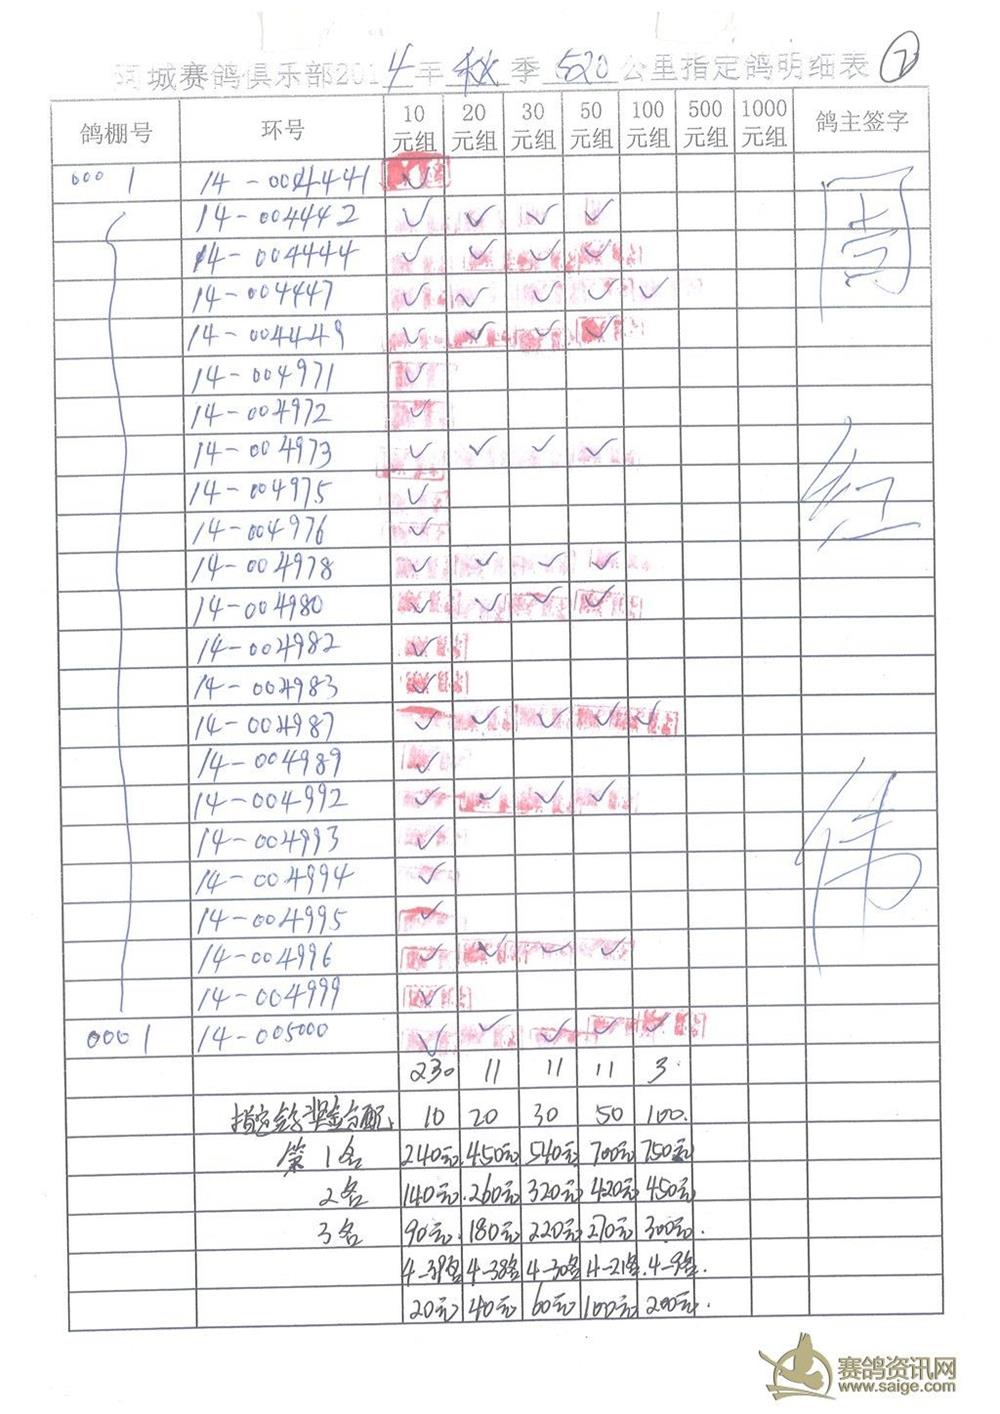 阿城赛鸽俱乐部2014年秋季520公里指定鸽明细表 ⑦
鸽棚号 环号 10元组 20元组 30元组 50元组 100元组 500元组 1000元组 鸽主签字
0001 14-004441 ✓
14-004442 ✓ ✓ ✓ ✓
14-004444 ✓ ✓ ✓ ✓
14-004447 ✓ ✓ ✓ ✓ ✓
14-004449 ✓ ✓ ✓ ✓
14-004971 ✓
14-004972 ✓
14-004973 ✓ ✓ ✓ ✓
14-004975 ✓
14-004976 ✓
14-004978 ✓ ✓ ✓ ✓
14-004980 ✓ ✓ ✓ ✓
14-004982 ✓
14-004983 ✓
14-004987 ✓ ✓ ✓ ✓ ✓
14-004989 ✓
14-004992 ✓ ✓ ✓ ✓
14-004993 ✓
14-004994 ✓
14-004995 ✓
14-004996 ✓ ✓ ✓ ✓
14-004999 ✓
0001 14-005000 ✓ ✓ ✓ ✓ ✓
周红伟
230 11 11 11 3
指定鸽奖金分配 10 20 30 50 100
第1名 240元 450元 540元 700元 750元
2名 140元 260元 320元 420元 450元
3名 90元 180元 220元 270元 300元
4-39名 4-38名 4-30名 4-21名 4-9名
20元 40元 60元 100元 200元
赛鸽资讯网
www.saige.com